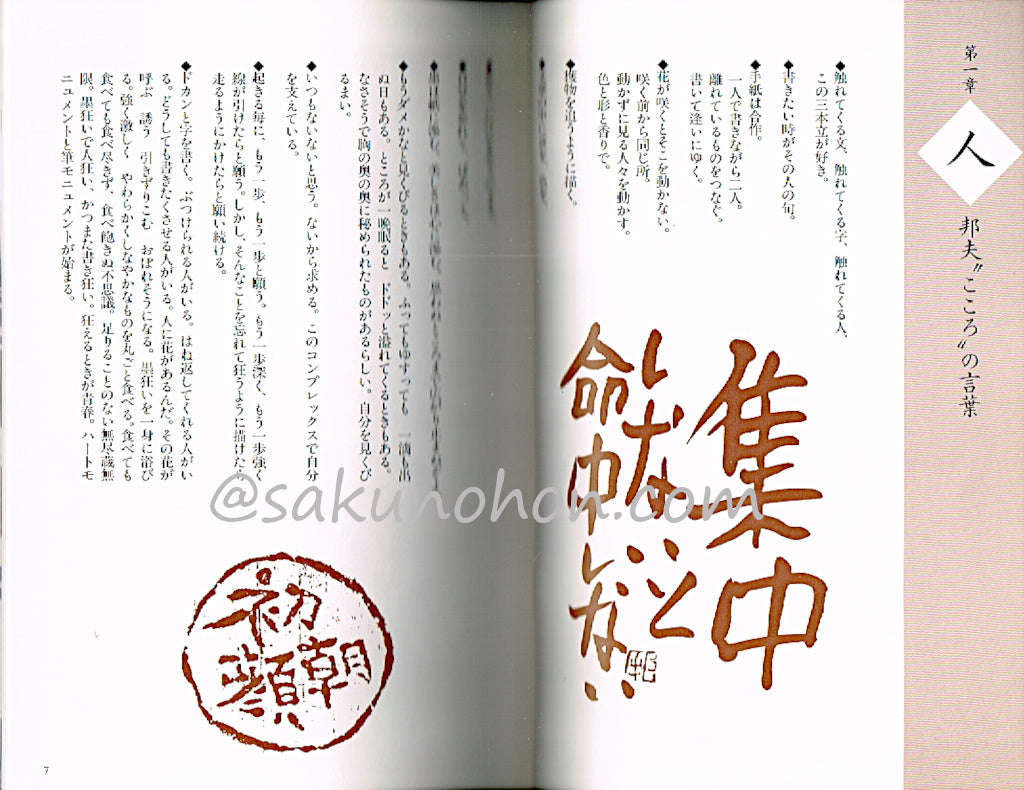 第一章
人
邦夫〝こころ〟の言葉
◆触れてくる文、触れてくる字、触れてくる人、
この三本立が好き。
◆書きたい時がその人の旬。
◆手紙は合作。
一人で書きながら二人。
離れているものをつなぐ。
書いて逢いにゆく。
◆花が咲くとそこを動かない。
咲く前から同じ所。
動かずに見る人々を動かす。
色と形と香りで。
◆獲物を追うように描く。
集中
しないと
命中しない
◆もうダメかなと見くびるときもある。ふってもゆすっても 一滴も出
ぬ日もある。ところが一晩眠ると ドドッと溢れてくるときもある。
なさそうで胸の奥の奥に秘められたものがあるらしい。自分を見くび
るまい。
◆いつもないないと思う。ないから求める。このコンプレックスで自分
を支えている。
◆起きる毎に、もう一歩、もう一歩と願う。もう一歩深く、もう一歩強く
線が引けたらと願う。しかし、そんなことを忘れて狂うように描けたら
走るようにかけたらと願い続ける。
◆ドカンと字を書く。ぶつけられる人がいる。はね返してくれる人がい
る。どうしても書きたくさせる人がいる。人に花があるんだ。その花が
呼ぶ 誘う 引きずりこむ おばれそうになる。墨狂いを一身に浴び
る。強く激しく やわらかくしなやかなものを丸ごと食べる。食べても
食べても食べ尽きず。食べ飽きぬ不思議。足りることのない無尽蔵無
限。墨狂いで人狂い、かつまた書き狂い。狂えるときが青春。ハートモ
ニュメントと筆モニュメントが始まる。
初
朝
顔
7
@sakunohon.com